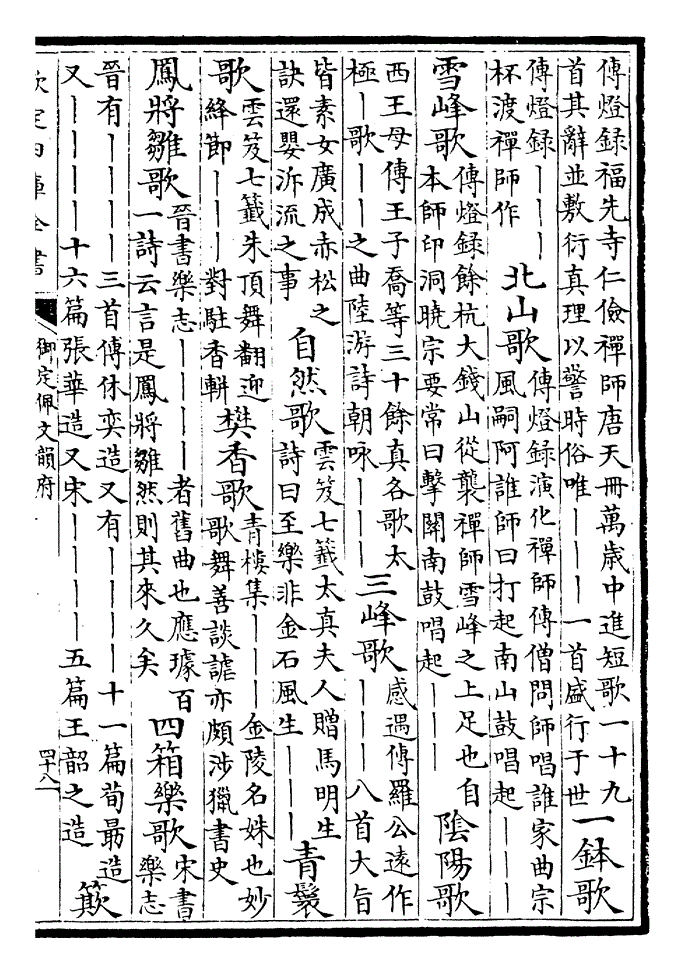 傳燈録福先寺仁儉禪師唐天冊萬歲中進短歌一十九
首其辭並敷衍真理以警時俗唯｜｜｜一首盛行于世
一鉢歌
傳燈録｜｜｜
杯渡禪師作
北山歌
傳燈録演化禪師傳僧問師唱誰家曲宗
風嗣阿誰師曰打起南山鼓唱起｜｜｜
雪峰歌
傳燈録餘杭大錢山從襲禪師雪峰之上足也自
本師印洞曉宗要常曰擊關南鼓唱起｜｜｜
陰陽歌
西王母傳王子喬等三十餘真各歌太
極｜歌｜｜之曲陸游詩朝咏｜｜｜
三峰歌
感遇傳羅公遠作
｜｜｜八首大旨
皆素女廣成赤松之
訣還嬰泝流之事
自然歌
雲笈七籤太真夫人贈馬明生
詩曰至樂非金石風生｜｜｜
青鬟
歌
雲笈七籤朱頂舞翻迎
絳節｜｜｜對駐香軿
樊香歌
青樓集｜｜｜金陵名姝也妙
歌舞善談謔亦頗涉獵書史
鳳將雛歌
晉書樂志｜｜｜｜者舊曲也應璩百
一詩云言是鳳將雛然則其來久矣
四箱樂歌
宋書
樂志
晉有｜｜｜｜三首傅休奕造又有｜｜｜｜十一篇荀朂造
又｜｜｜｜十六篇張華造又宋｜｜｜｜五篇王韶之造
歟
欽定四庫全書
御定佩文韻府
四十八